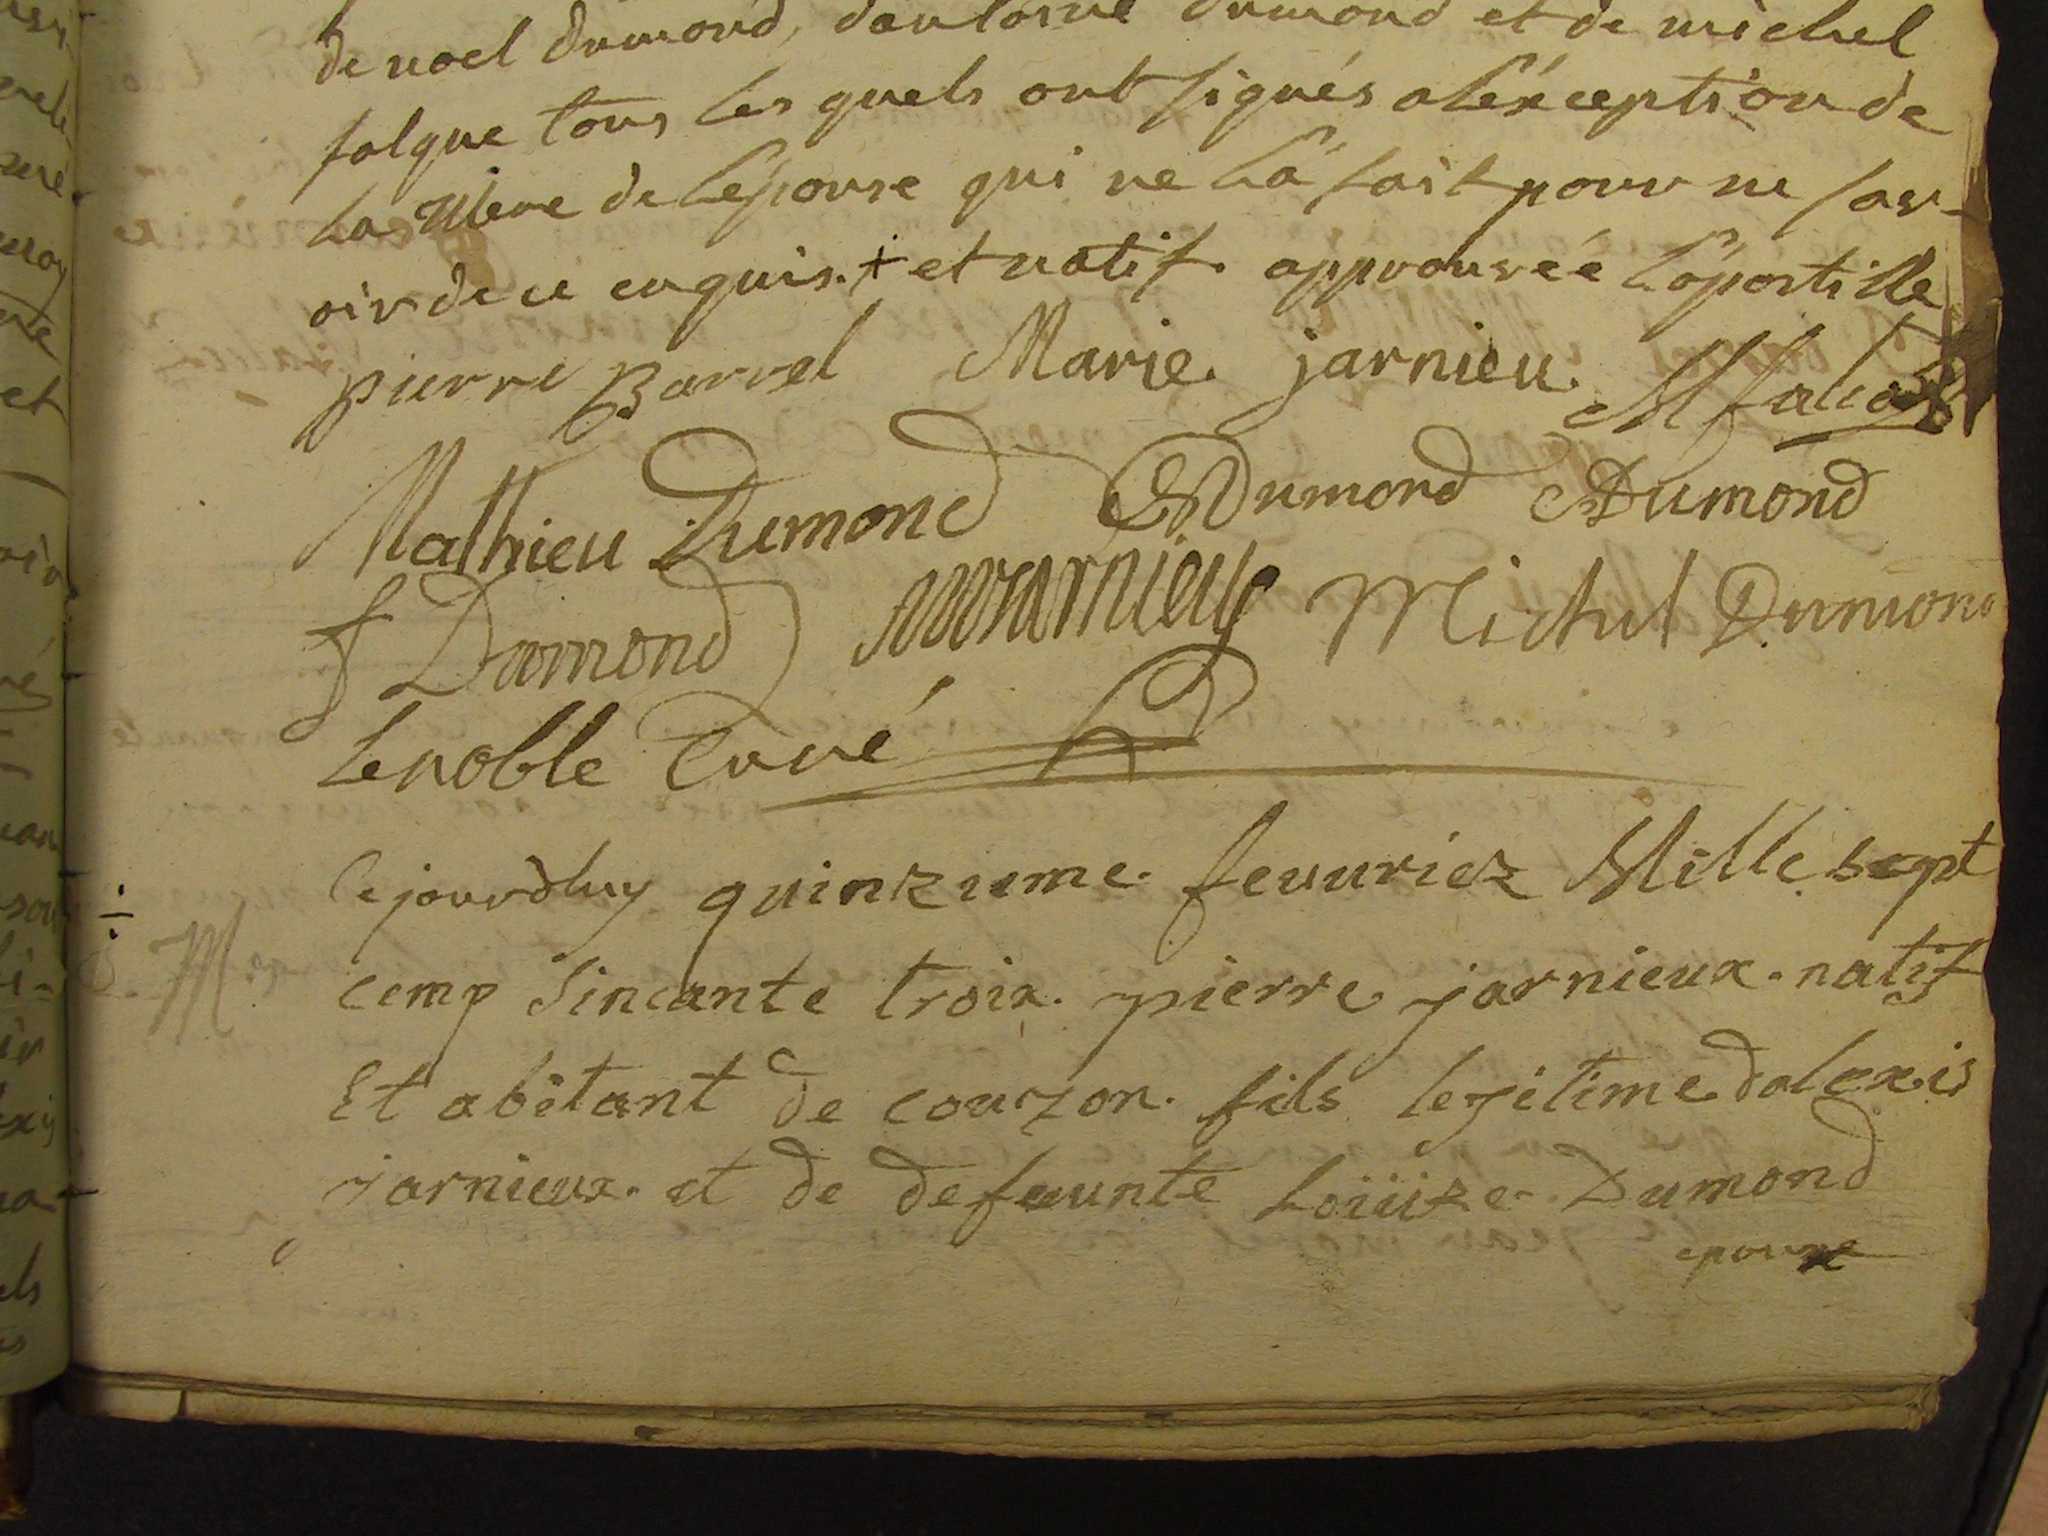 de noel dumond, dantoine dumond et de michel
falque tous les quels ont signés a léxception de
la Mere de lépouse qui ne la fait pour ne sav-
oir de ce enquis. + et natif. approuvée lapostille
pierre Barrel Marie jarnieu. M falcoz
Mathieu Dumond Dumond Dumond
f Dumond jarnieux Michel Dumond
Lenoble Curé
Cejourdhuy quinzieme. fevuriez Mille sept
M
cemp Sincante troix. pierre jarnieux. natif
Et abitant de couzon. fils lejitime dalexis
jarnieux. et de defuunte Loüize. Dumond
epouse